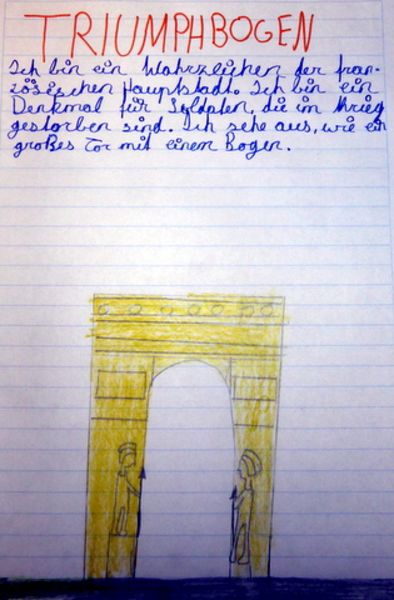 TRIUMPHBOGEN
Ich bin ein Wahrzeichen der fran-
zösischen Hauptstadt. Ich bin ein
Denkmal für Soldaten, die im Krieg
gestorben sind. Ich sehe aus, wie ein
großes Tor mit einem Bogen.